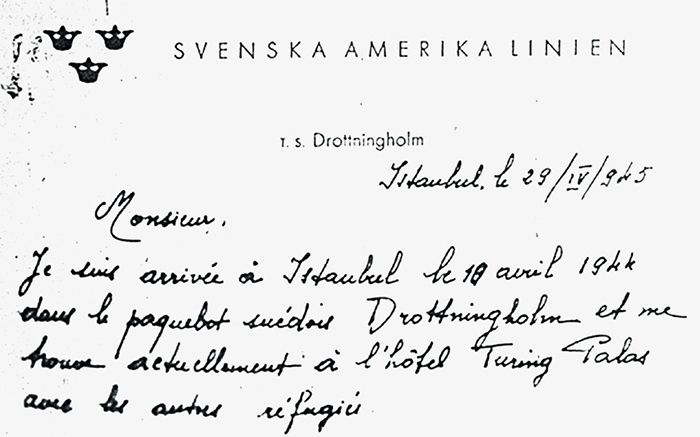 SVENSKA AMERIKA LINIEN
T. S. Drottningholm
Istanbul, le 29/IV/945
Monsieur,
Je suis arrivée à Istanbul le 10 avril 1944
dans le paquebot suédois Drottningholm et me
trouve actuellement à l'hôtel Turing Palas
avec les autres réfugiés